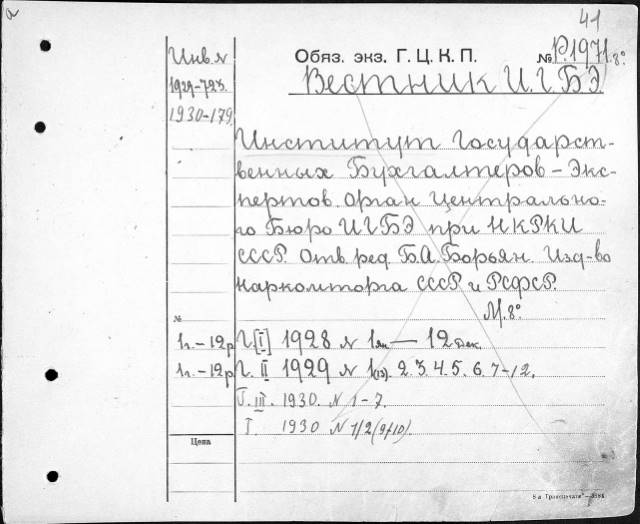 а
41
Инв. №
Обяз. экз. Г. Ц. К. П.
№ Р.1971.8°
1929–723.
Вестник И.Г.Б.Э.
1930–179.
Институт Государст-
венных Бухгалтеров – Экс-
пертов. Орган Центрально-
го Бюро ИГБЭ при НКРКИ
СССР. Отв. ред. Б.А. Борьян. Изд-во
Наркомторга СССР и РСФСР.
М. 8°
№
1г.–12р. Г.[I] 1928 № 1 янв. — 12 дек.
1г.–12р. Г. II 1929 № 1(13). 2. 3. 4. 5. 6. 7–12.
Г. III. 1930. № 1–7.
Г. 1930 № 1/2 (9/10).
Цена